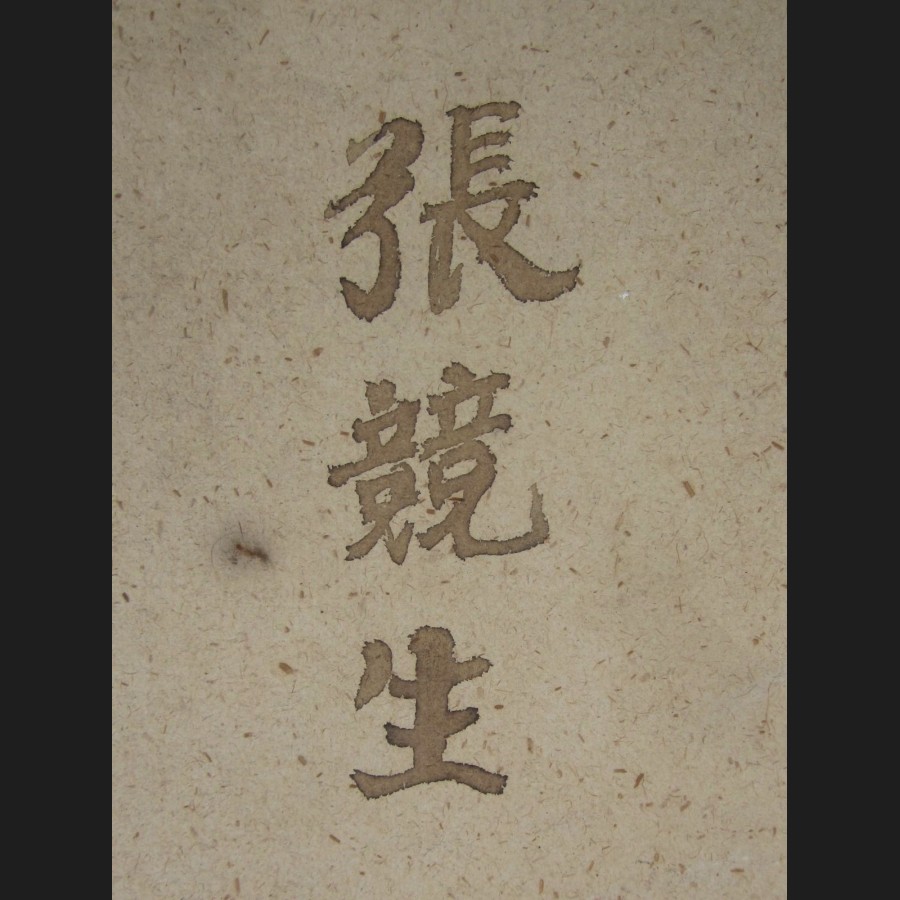 張競生